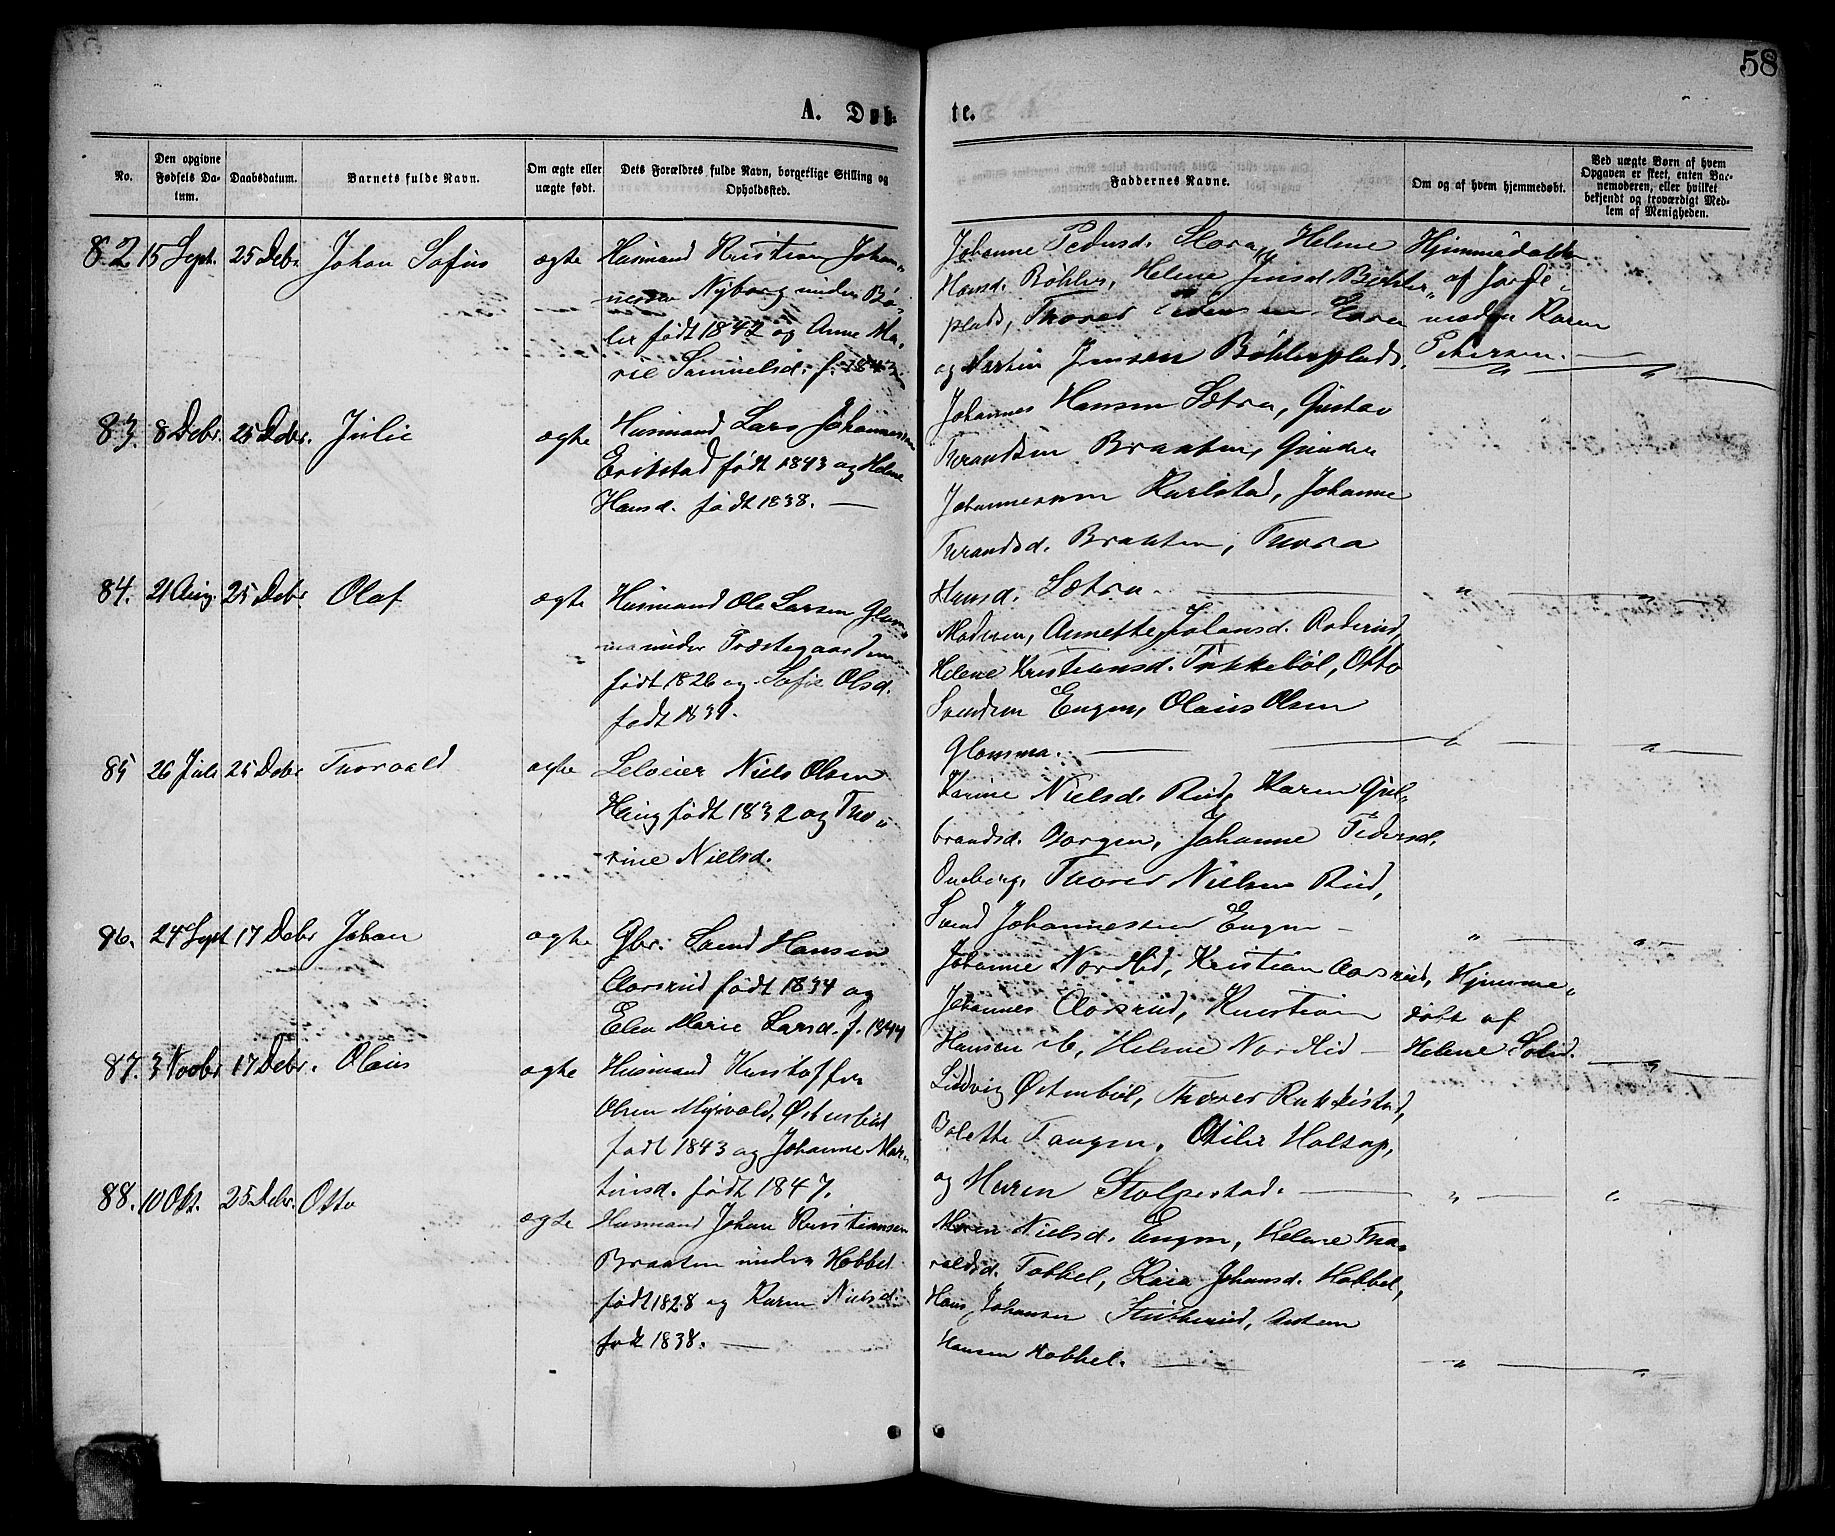 58
A. Døb- te.
No.
Den opgivne Fødsels Da- tum.
Daabsdatum.
Barnets fulde Navn.
Om ægte eller uægte født.
Dets Forældres fulde Navn, borgerlige Stilling og Opholdssted.
Faddernes Navne.
Om og af hvem hjemmedøbt.
Ved uægte Børn af hvem Opgaven er skeet, enten Bar- nemoderen, eller hvilket bekjendt og troværdigt Med- lem af Menigheden.
82 15 Sept. 25 Debr Johan Sofus ægte
Husmand Kristian Johan„
nesen Nyborg under Bø„
ler født 1842 og Anne Ma„
rie Samuelsd. f. 1843
Johanne Pedersd. Slora, Helene
Hansd. Bøhler, Helene Jensd. Bøhler„
plads, Thorer Pedersen
og Martin Jensen Bøhlerplads.
Hjemmedøbt
af Jorde„
moder Karen
Petersen. —
83. 8 Debr. 25 Debr. Julie ægte
Husmand Lars Johannessen
Erikstad født 1843 og Helene
Hansd. født 1838. —
Johannes Hansen Sætra, Gustav
Thrandsen Braaten, Gunder
Johannessen Karlstad, Johanne
Thrandsd. Braaten, Thora
Hansd. Sætra. —
84. 21 Aug. 25 Debr Olaf ægte
Husmand Ole Larsen Glom„
ma under Præstegaarden
født 1826 og Sofie Olsd.
født 1839.
Moderen, Annette Johansd. Aaserud,
Helene Kristiansd. Tukkebøl, Otto
Svendsen Engen, Olaus Olsen
Glomma. —
85 26 Juli 25 Debr Thorvald ægte
Selveier Niels Olsen
Haug født 1832 og Tho„
rine Nielsd.
Karine Nielsd. Rud, Karen Gul„
brandsd. Borgen, Johanne Pedersd.
Thorer Nielsen Rud,
Svend Johannessen Engen —
86. 24 Sept 17 Debr Johan ægte
Gbr. Svend Hansen
Aarsrud født 1834 og
Elen Marie Larsd. f. 1844
Johanne Nordlid, Kristian Aarsrud,
Johannes Aarsrud, Kristian
Hansen ib, Helene Nordlid —
Hjemme„
døbt af
Helene
87. 3 Novbr 17 Debr. Olaus ægte
Husmand Kristoffer
Olsen Myrvold, Østenbøl
født 1843 og Johanne Mar„
tinsd. født 1847.
Ludvig Østenbøl, Thorer Rukkestad,
Bolette Tangen, Otilie Haltorp,
og Maren Stolpestad. —
88. 10 Okt. 25 Debr. Otto ægte
Husmand Johan Kristiansen
Braaten under Hobbel
født 1828 og Karen Nielsd.
født 1838. —
Maren Nielsd. Engen, Helene Tha„
raldsd. Tobbel, Kaia Johansd. Hobbel,
Hans Johansen Stubberud, Anton
Hansen Hobbel.